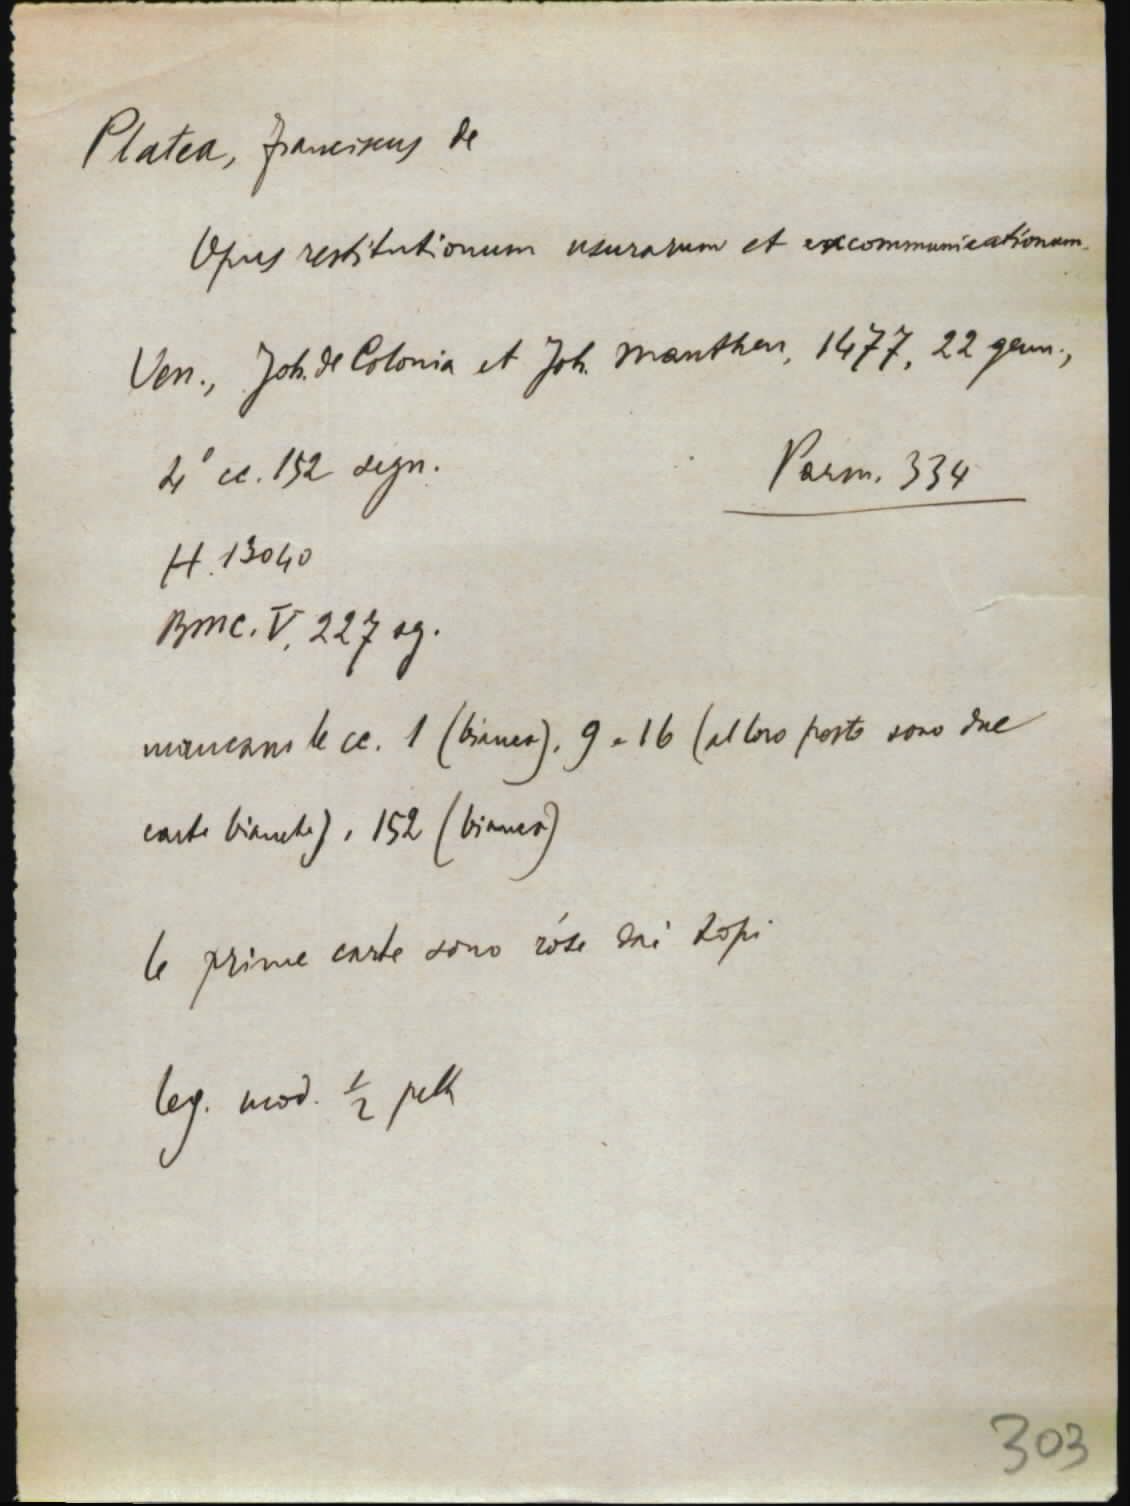 Platea, Franciscus de
Opus restitutionum usurarum et excommunicationum.
Ven., Joh. de Colonia et Joh. Manthen, 1477, 22 genn.,
4° cc. 152 segn.
Parm. 334
H. 13040
BMC. V, 227 sg.
mancano le cc. 1 (bianca), 9-16 (al loro posto sono due
carte bianche), 152 (bianca)
le prime carte sono róse dai topi
leg. mod. 1/2 pelle
303